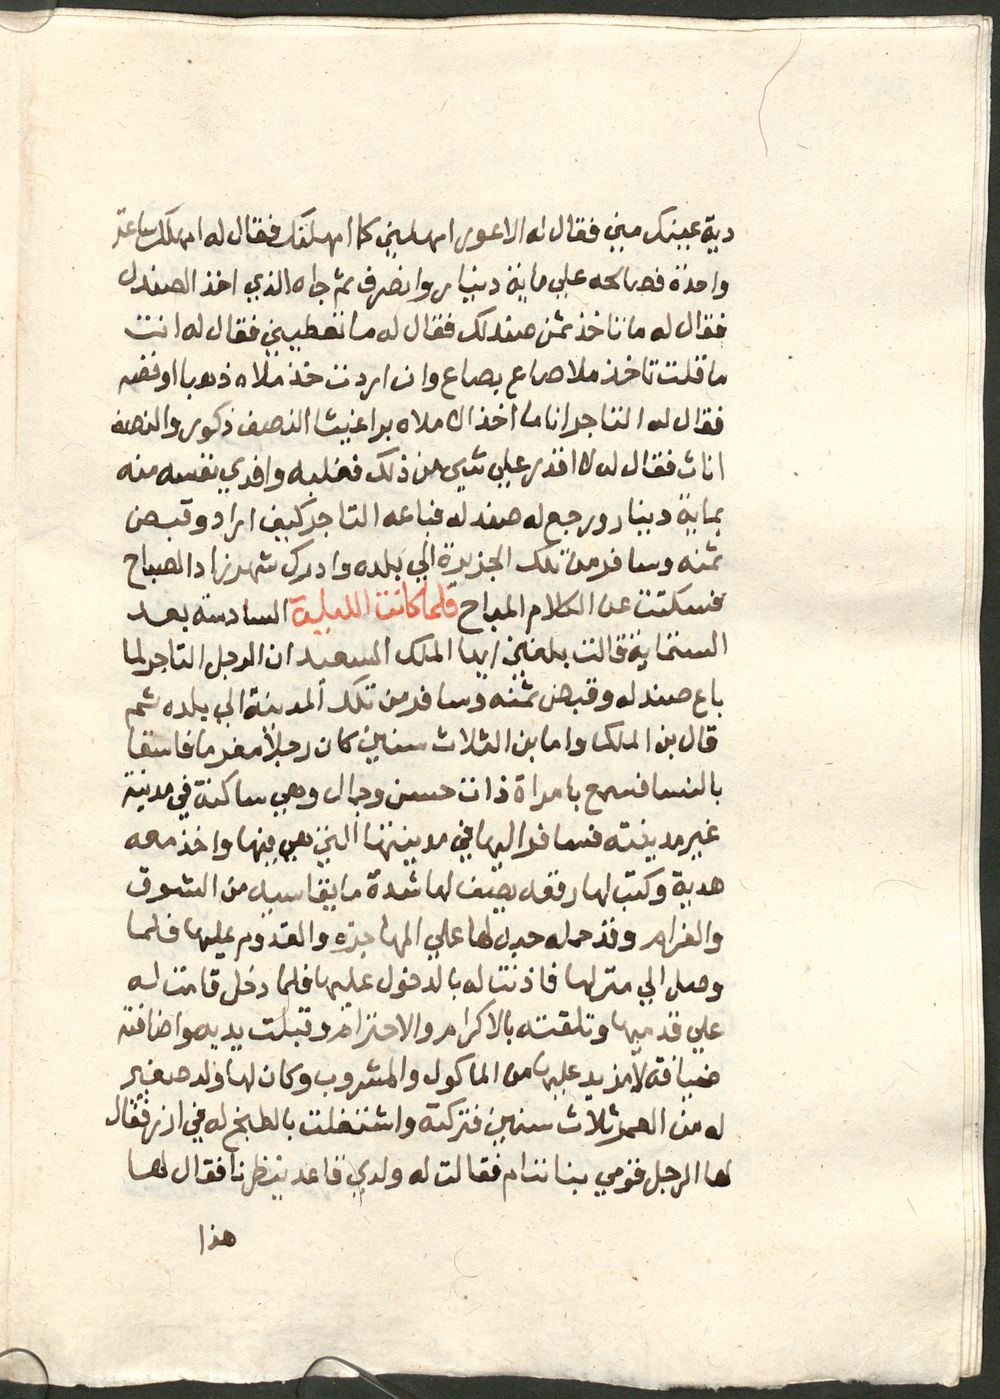 دية عينك مني فقال له الاعور امهليني كما امهلتك فقال له امهلك ساعة
واحدة فصالحه علي ماية دينار وانصرف ثم جاه الذي اخذ الصندل
فقال له ما تاخذ ثمن صندلك فقال له ما تعطيني فقال له انت
ما قلت تاخذ ملا صاع بصاع وان اردت خذ ملاه ذهبا او فضه
فقال له التاجر انا ما اخذ الا ملاه براغيثا النصف ذكور والنصف
اناث فقال له لا اقدر علي شي من ذلك فغلبه وافدي نفسه منه
بماية دينار ورجع له صندله فباعه التاجر كيف اراد وقبض
ثمنه وسافر من تلك الجزيرة الي بلده وادرك شهرزاد الصباح
فسكتت عن الكلام المباح فلما كانت الليلة السادسة بعد
الستماية قالت بلغني ايها الملك السعيد ان الرجل التاجر لما
باع صندله وقبض ثمنه وسافر من تلك المدينة الي بلده ثم
قال بن الملك واما بن الثلاث سنين كان رجلا مغرما فاسقا
بالنسا فسمع بامراة ذات حسن وجمال وهي ساكنة في مدينة
غير مدينته فسافر اليها في مدينتها التي هي فيها واخذ معه
هدية وكتب لها رقعه يصف لها شدة ما يقاسيه من الشوق
والغرام وقد حمله حبه لها علي المهاجره والقدوم عليها فلما
وصل الي منزلها فاذنت له بالدخول عليها فلما دخل قامت له
علي قدميها وتلقته بالاكرام والاحترام وقبلت يديه واضافته
ضيافة لا مزيد عليها من الماكول والمشروب وكان لها ولد صغير
له من العمر ثلاث سنين فتركته واشتغلت بالطبخ له في ارز فقال
لها الرجل قومي بنا ننام فقالت له ولدي قاعد ينظرنا فقال لها
هذا